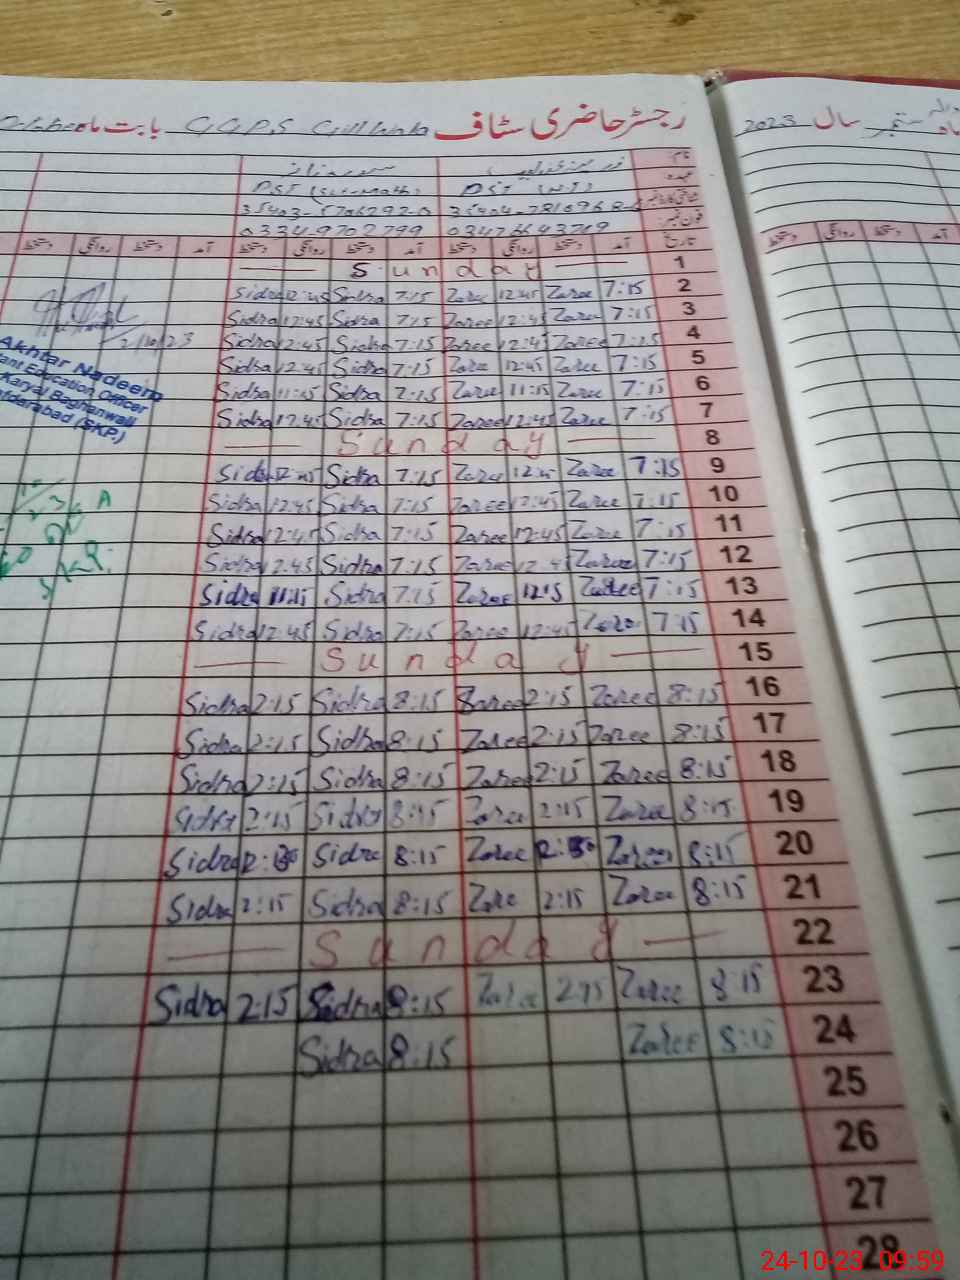 رجسٹر حاضری سٹاف GGPS بابت ماہ
سال 2023
ماہ ستمبر
نام
عہدہ
PST (Sci-Math) PST
شناختی کارڈ نمبر
فون نمبر
03349702799 03476643769
تاریخ آمد دستخط روانگی دستخط آمد دستخط روانگی دستخط آمد دستخط روانگی دستخط
آمد دستخط روانگی دستخط
Sunday 1
Sidra 12:45 Sidra 7:15 Zaree 12:45 Zaree 7:15 2
Sidra 12:45 Sidra 7:15 Zaree 12:45 Zaree 7:15 3
Sidra 12:45 Sidra 7:15 Zaree 12:45 Zaree 7:15 4
Sidra 12:45 Sidra 7:15 Zaree 12:45 Zaree 7:15 5
Sidra 11:15 Sidra 7:15 Zaree 11:15 Zaree 7:15 6
Sidra 12:45 Sidra 7:15 Zaree 12:45 Zaree 7:15 7
Sunday 8
Sidra 12:45 Sidra 7:15 Zaree 12:45 Zaree 7:15 9
Sidra 12:45 Sidra 7:15 Zaree 12:45 Zaree 7:15 10
Sidra 12:45 Sidra 7:15 Zaree 12:45 Zaree 7:15 11
Sidra 12:45 Sidra 7:15 Zaree 12:45 Zaree 7:15 12
Sidra 11:15 Sidra 7:15 Zaree Zaree 7:15 13
Sidra 12:45 Sidra 7:15 Zaree 12:45 Zaree 7:15 14
Sunday 15
Sidra 2:15 Sidra 8:15 Zaree 2:15 Zaree 8:15 16
Sidra 2:15 Sidra 8:15 Zaree 2:15 Zaree 8:15 17
Sidra 2:15 Sidra 8:15 Zaree 2:15 Zaree 8:15 18
Sidra 2:15 Sidra 8:15 Zaree 2:15 Zaree 8:15 19
Sidra Sidra 8:15 Zaree Zaree 8:15 20
Sidra 2:15 Sidra 8:15 Zaree 2:15 Zaree 8:15 21
Sunday 22
Sidra 2:15 Sidra 8:15 Zaree 2:15 Zaree 8:15 23
Sidra 8:15 Zaree 8:15 24
25
26
27
28
2/10/23
Akhtar Nadeem
Education Officer
Karyal Baghanwali
(SKP.)
24-10-23 09:59